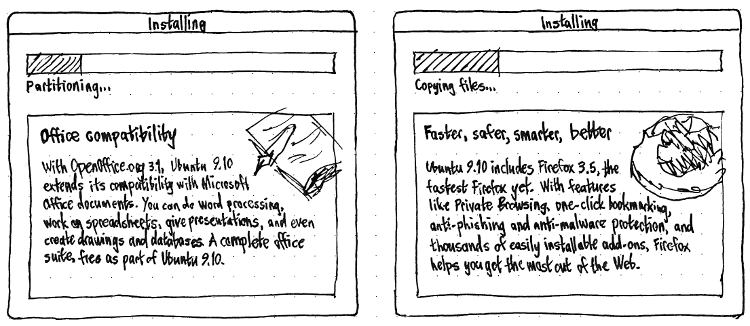 Installing
Partitioning...
Office compatibility
With OpenOffice.org 3.1, Ubuntu 9.10
extends its compatibility with Microsoft
Office documents. You can do word processing,
work on spreadsheets, give presentations, and even
create drawings and databases. A complete office
suite, free as part of Ubuntu 9.10.
Installing
Copying files...
Faster, safer, smarter, better
Ubuntu 9.10 includes Firefox 3.5, the
fastest Firefox yet. With features
like Private Browsing, one-click bookmarking,
anti-phishing and anti-malware protection, and
thousands of easily installable add-ons, Firefox
helps you get the most out of the Web.